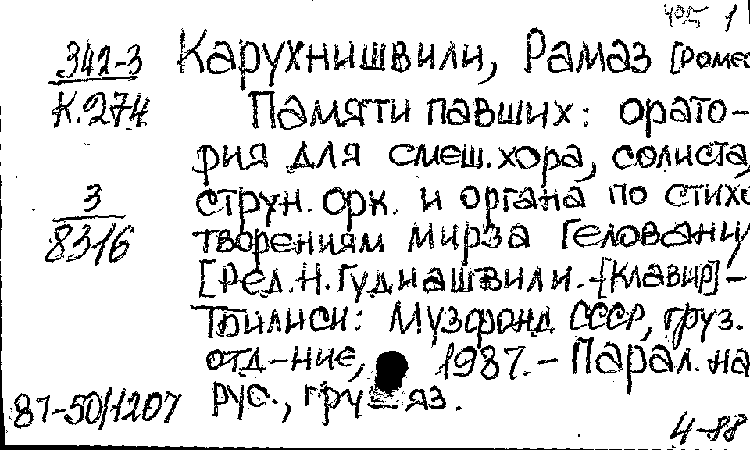 1
342-3 Карухнишвили, Рамаз [Ромео
К.274 Памяти павших: орато-
рия для смеш.хора, солиста,
3 струн. орк. и органа по стихо
8316 творениям Мирза Геловани/
[Ред.Н.Гудиашвили.-[Клавир]-
Тбилиси: Музфонд СССР, груз.
отд-ние, 1987.- Парал. на
87-50/1207 рус., груз яз.
4-88